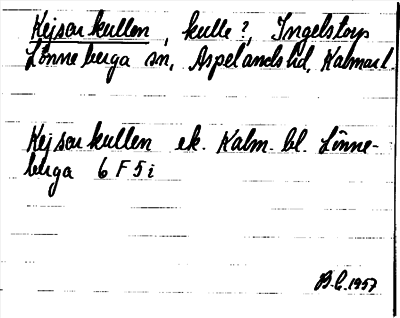 Kejsarkullen, kulle?, Ingelstorp
Lönneberga sn, Aspelands hd, Kalmar l.
Kejsarkullen ek. Kalm. bl. Lönne-
berga 6 F 5 i
B.C. 1957